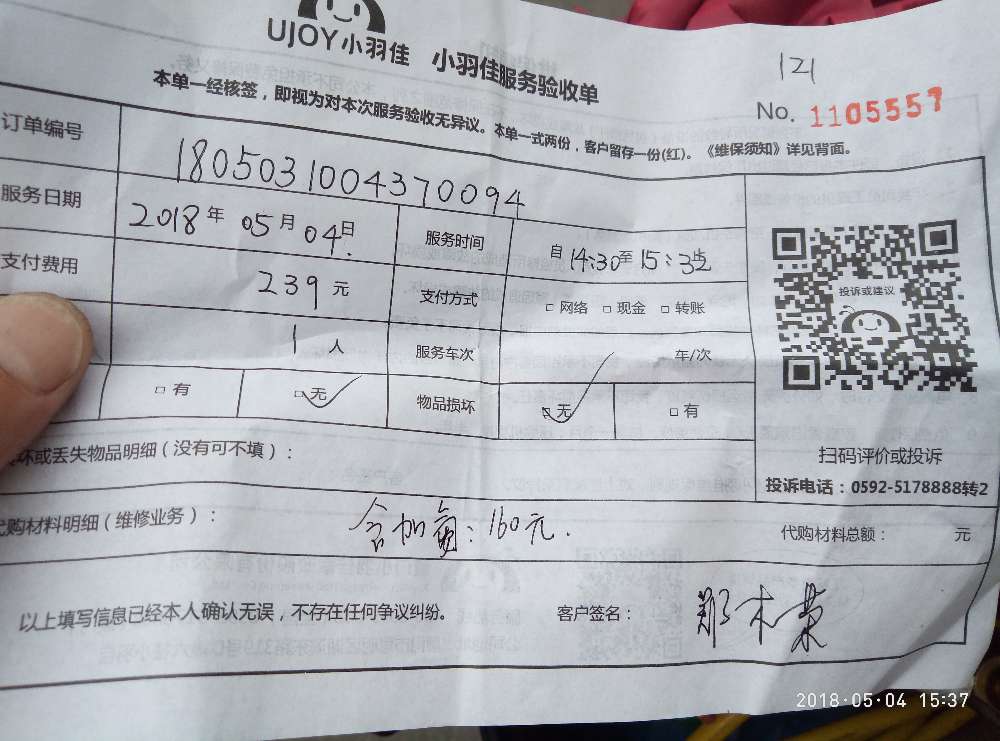 UJOY小羽佳 小羽佳服务验收单
121
No. 1105557
本单一经核签，即视为对本次服务验收无异议。本单一式两份，客户留存一份(红)。《维保须知》详见背面。
订单编号 1805031004370094
服务日期 2018年05月04日 服务时间 自14:30至15:35
支付费用 239元 支付方式 □网络 □现金 □转账
1人 服务车次 车/次
□有 □无 物品损坏 □无 □有
投诉或建议
扫码评价或投诉
投诉电话：0592-5178888转2
坏或丢失物品明细（没有可不填）：
代购材料明细（维修业务）： 含加氟：160元. 代购材料总额： 元
以上填写信息已经本人确认无误，不存在任何争议纠纷。 客户签名： 郑木荣
2018·05·04 15:37